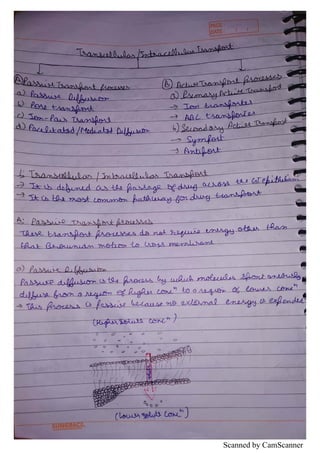 PAGE
DATE
Transcellular/Intracellular Transport
(A) Passive Transport processes
a) Passive Diffusion
b) Pore transport
c) Ion-Pair Transport
d) Facilitated/Mediated Diffusion
(B) Active Transport processes
a) Primary Active Transport
→ Ion transporter
→ ABC transporter
b) Secondary Active Transport
→ Symport
→ Antiport
1. Transcellular / Intracellular Transport
→ It is defined as the passage of drug across the GI epithelium
→ It is the most common pathway for drug transport
A: Passive Transport processes
These transport processes do not require energy other than
that Brownian motion to cross membrane
a) Passive Diffusion
Passive diffusion is the process by which molecules spontaneously
diffuse from a region of higher concⁿ to a region of lower concⁿ.
→ This process is passive because no external energy is expended
(Higher solute concⁿ)
(Lower solute concⁿ)
SUNDARAM
Scanned by CamScanner